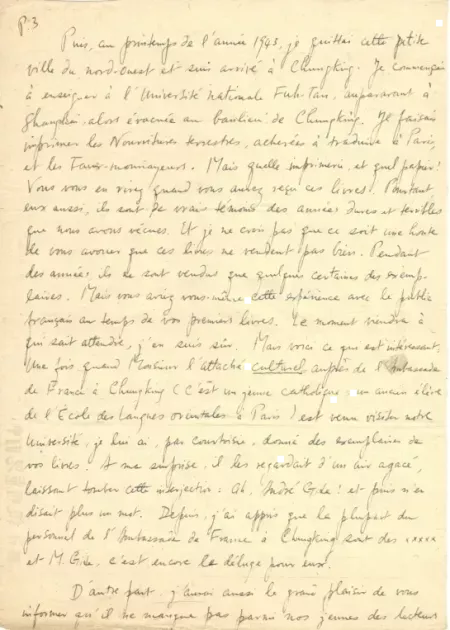 P. 3
Puis, au printemps de l'année 1943, je quittai cette petite
ville du nord-ouest et suis arrivé à Chungking. Je commençais
à enseigner à l'Université nationale Fuh-Tan, auparavant à
Shanghai, alors évacuée au banlieue de Chungking. Je faisais
imprimer les Nourritures terrestres, achevées à traduire à Paris,
et les Faux-monnayeurs. Mais quelle imprimerie, et quel papier!
Vous vous en rirez quand vous aurez reçu ces livres. Pourtant
eux aussi, ils sont de vrais témoins des années dures et terribles
que nous avons vécues. Et je ne crois pas que ce soit une honte
de vous avouer que ces livres ne vendent pas bien. Pendant
des années, ils ne sont vendus que quelques certaines des exemp-
laires. Mais vous aviez vous-même cette expérience avec le public
français au temps de vos premiers livres. Le moment viendra à
qui sait attendre, j'en suis sûr. Mais voici ce qui est intéressant.
Une fois quand Monsieur l'attaché culturel, auprès de l'Ambassade
de France à Chungking (C'est un jeune catholique, un ancien élève
de l'École des langues orientales à Paris) est venu visiter notre
Université, je lui ai, par courtoisie, donné des exemplaires de
vos livres. A ma surprise, il les regardait d'un air agacé,
laissant tomber cette interjection: Ah, André Gide! et puis n'en
disait plus un mot. Depuis, j'ai appris que la plupart du
personnel de l'Ambassade de France à Chungking sont des xxxxx
et M. Gide, c'est encore le déluge pour eux.
D'autre part, j'aurai aussi le grand plaisir de vous
informer qu'il ne manque pas parmi nos jeunes des lecteurs